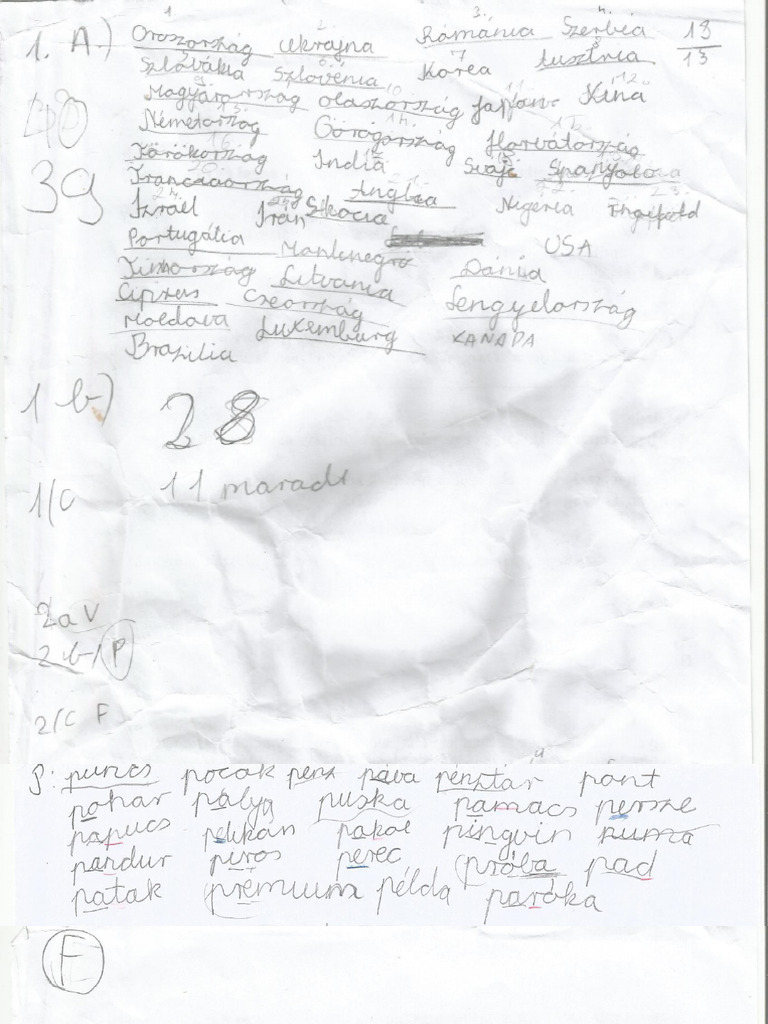 1. 2. 3. 4.
1. A.) Oroszország Ukrajna Románia Szerbia 13/13
Szlovákia Szlovénia Korea Ausztria
Magyarország olaszország Japán Kina
Németország Görögország Horvátország
Törökország India Svájc
39 Franciaország Anglia
Izrael Irán Skócia Nigeria
Portugália Montenegró USA
Finnország Litvánia Dánia
Ciprus Csehország Lengyelország
Moldova Luxemburg KANADA
Brazilia
1 b) 28
1/c 11 maradt
2a V
2 b-/ P
2/c F
P: puncs pocak pénz páva pénztár pont
pohár pálya puska pamacs persze
papucs pelikán pakol pingvin puma
pandúr piros perec próba pad
patak prémium példa paróka
F